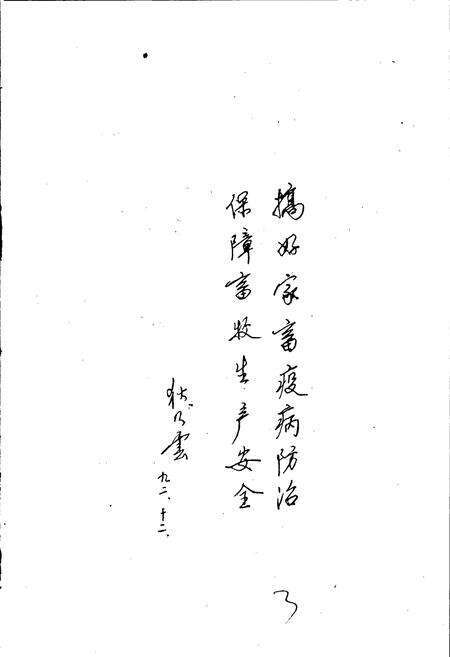 搞好家畜疫病防治
保障畜牧生产安全
狄乃云
九二、十二、